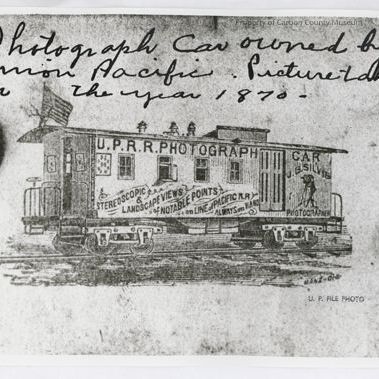 Property of Carbon County Museum
Photograph Car owned by
Union Pacific. Picture tak
in the year 1870-
U.P.R.R. PHOTOGRAPH CAR
J.B. SILVIS
STEREOSCOPIC &
LANDSCAPE VIEWS
OF NOTABLE POINTS
ON LINE of PACIFIC R.R.
ALWAYS ON HAND
PHOTOGRAPHER
U. P. FILE PHOTO